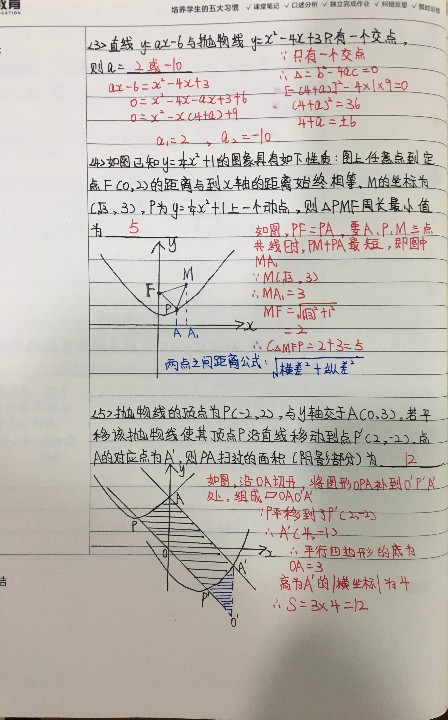 教育
培养学生的五大习惯 √课堂笔记 √口述分析 √独立完成作业 √纠错反思 √限时训练
<3>直线 y=ax-6 与抛物线 y=x²-4x+3 只有一个交点,
则 a= 2或-10
∵只有一个交点
ax-6=x²-4x+3
∴△=b²-4ac=0
0=x²-4x-ax+3+6
[-(4+a)]²-4×1×9=0
0=x²-x(4+a)+9
(4+a)²=36
4+a=±6
a₁=2 , a₂=-10
<4>如图已知 y=¼x²+1的图象具有如下性质:图上任意点到定
点F(0,2)的距离与到x轴的距离始终相等, M的坐标为
(√3, 3), P为y=¼x²+1上一个动点, 则△PMF周长最小值
为 5
如图, PF=PA, 要A、P、M三点
共线时, PM+PA最短, 即图中
MA₁
∵M(√3, 3)
∴MA₁=3
MF=√(√3)²+1²
=2
∴C△MFP=2+3=5
y
F
M
P
A
A₁
x
两点之间距离公式: √横差²+纵差²
<5>抛物线的顶点为P(-2,2), 与y轴交于A(0,3), 若平
移该抛物线使其顶点P沿直线移动到点P'(2,-2), 点
A的对应点为A', 则PA扫过的面积(阴影部分)为 12
如图, 沿OA切开, 将图形OPA补到O'P'A'
处, 组成▱OAO'A'
∵P平移到了P'(2,-2)
∴A'(4,-1)
∴平行四边形的底为
OA=3
高为A'的|横坐标|为4
∴S=3×4=12
y
A
P
O
x
A'
P'
O'
结